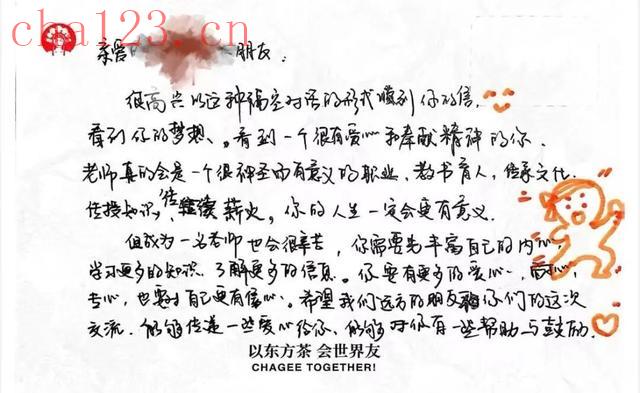 cha123.cn
亲爱 朋友:
很高兴以这种隔空对话的形式 到你的信,
看到你的梦想、看到一个很有爱心和奉献精神的你.
老师真的会是一个很神圣而有意义的职业、教书育人,传承文化
传授知识、传 薪火。你的人生一定会更有意义.
但成为一名老师也会很辛苦,你需要先丰富自己的内心,
学习更多的知识、了解更多的信息。你要有更多的爱心、耐心,
专心,也要对自己更有信心。希望我们远方的朋友和你们的这次
交流.能够传递一些爱心给你、能够对你有一些帮助与鼓励.
以东方茶 会世界友
CHAGEE TOGETHER!